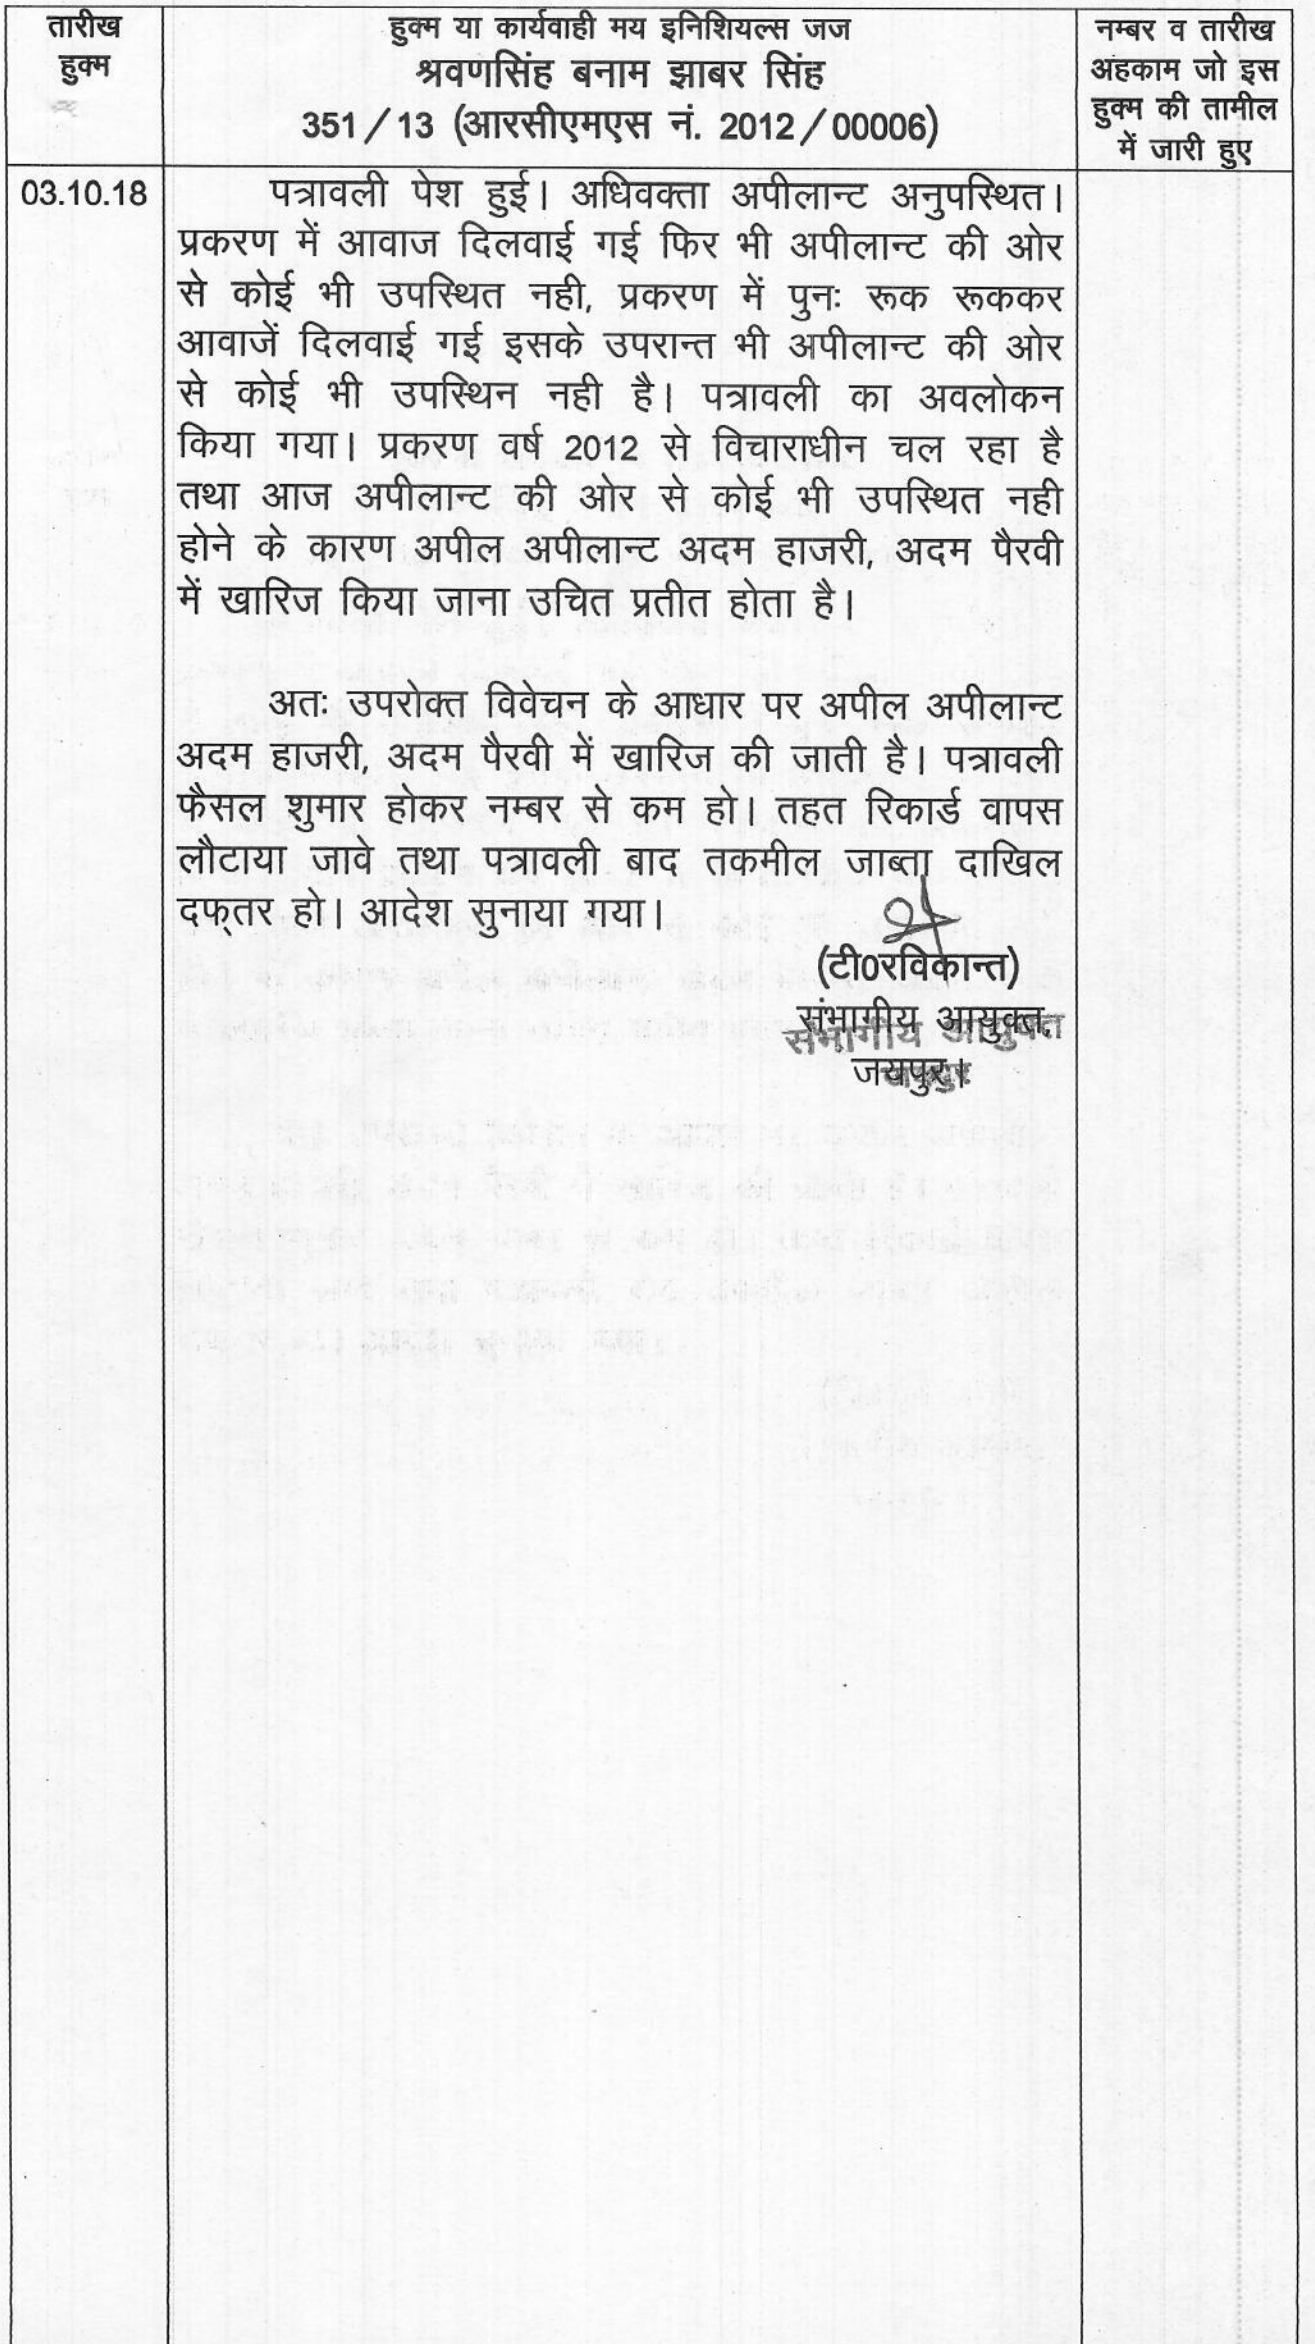 तारीख
हुक्म
हुक्म या कार्यवाही मय इनिशियल्स जज
श्रवणसिंह बनाम झाबर सिंह
351/13 (आरसीएमएस नं. 2012/00006)
नम्बर व तारीख
अहकाम जो इस
हुक्म की तामील
में जारी हुए
03.10.18
पत्रावली पेश हुई। अधिवक्ता अपीलान्ट अनुपस्थित।
प्रकरण में आवाज दिलवाई गई फिर भी अपीलान्ट की ओर
से कोई भी उपस्थित नही, प्रकरण में पुनः रूक रूककर
आवाजें दिलवाई गई इसके उपरान्त भी अपीलान्ट की ओर
से कोई भी उपस्थिन नही है। पत्रावली का अवलोकन
किया गया। प्रकरण वर्ष 2012 से विचाराधीन चल रहा है
तथा आज अपीलान्ट की ओर से कोई भी उपस्थित नही
होने के कारण अपील अपीलान्ट अदम हाजरी, अदम पैरवी
में खारिज किया जाना उचित प्रतीत होता है।
अतः उपरोक्त विवेचन के आधार पर अपील अपीलान्ट
अदम हाजरी, अदम पैरवी में खारिज की जाती है। पत्रावली
फैसल शुमार होकर नम्बर से कम हो। तहत रिकार्ड वापस
लौटाया जावे तथा पत्रावली बाद तकमील जाब्ता दाखिल
दफ्तर हो। आदेश सुनाया गया।
(टी0रविकान्त)
संभागीय आयुक्त,
संभागीय आयुक्त
जयपुर।
जयपुर